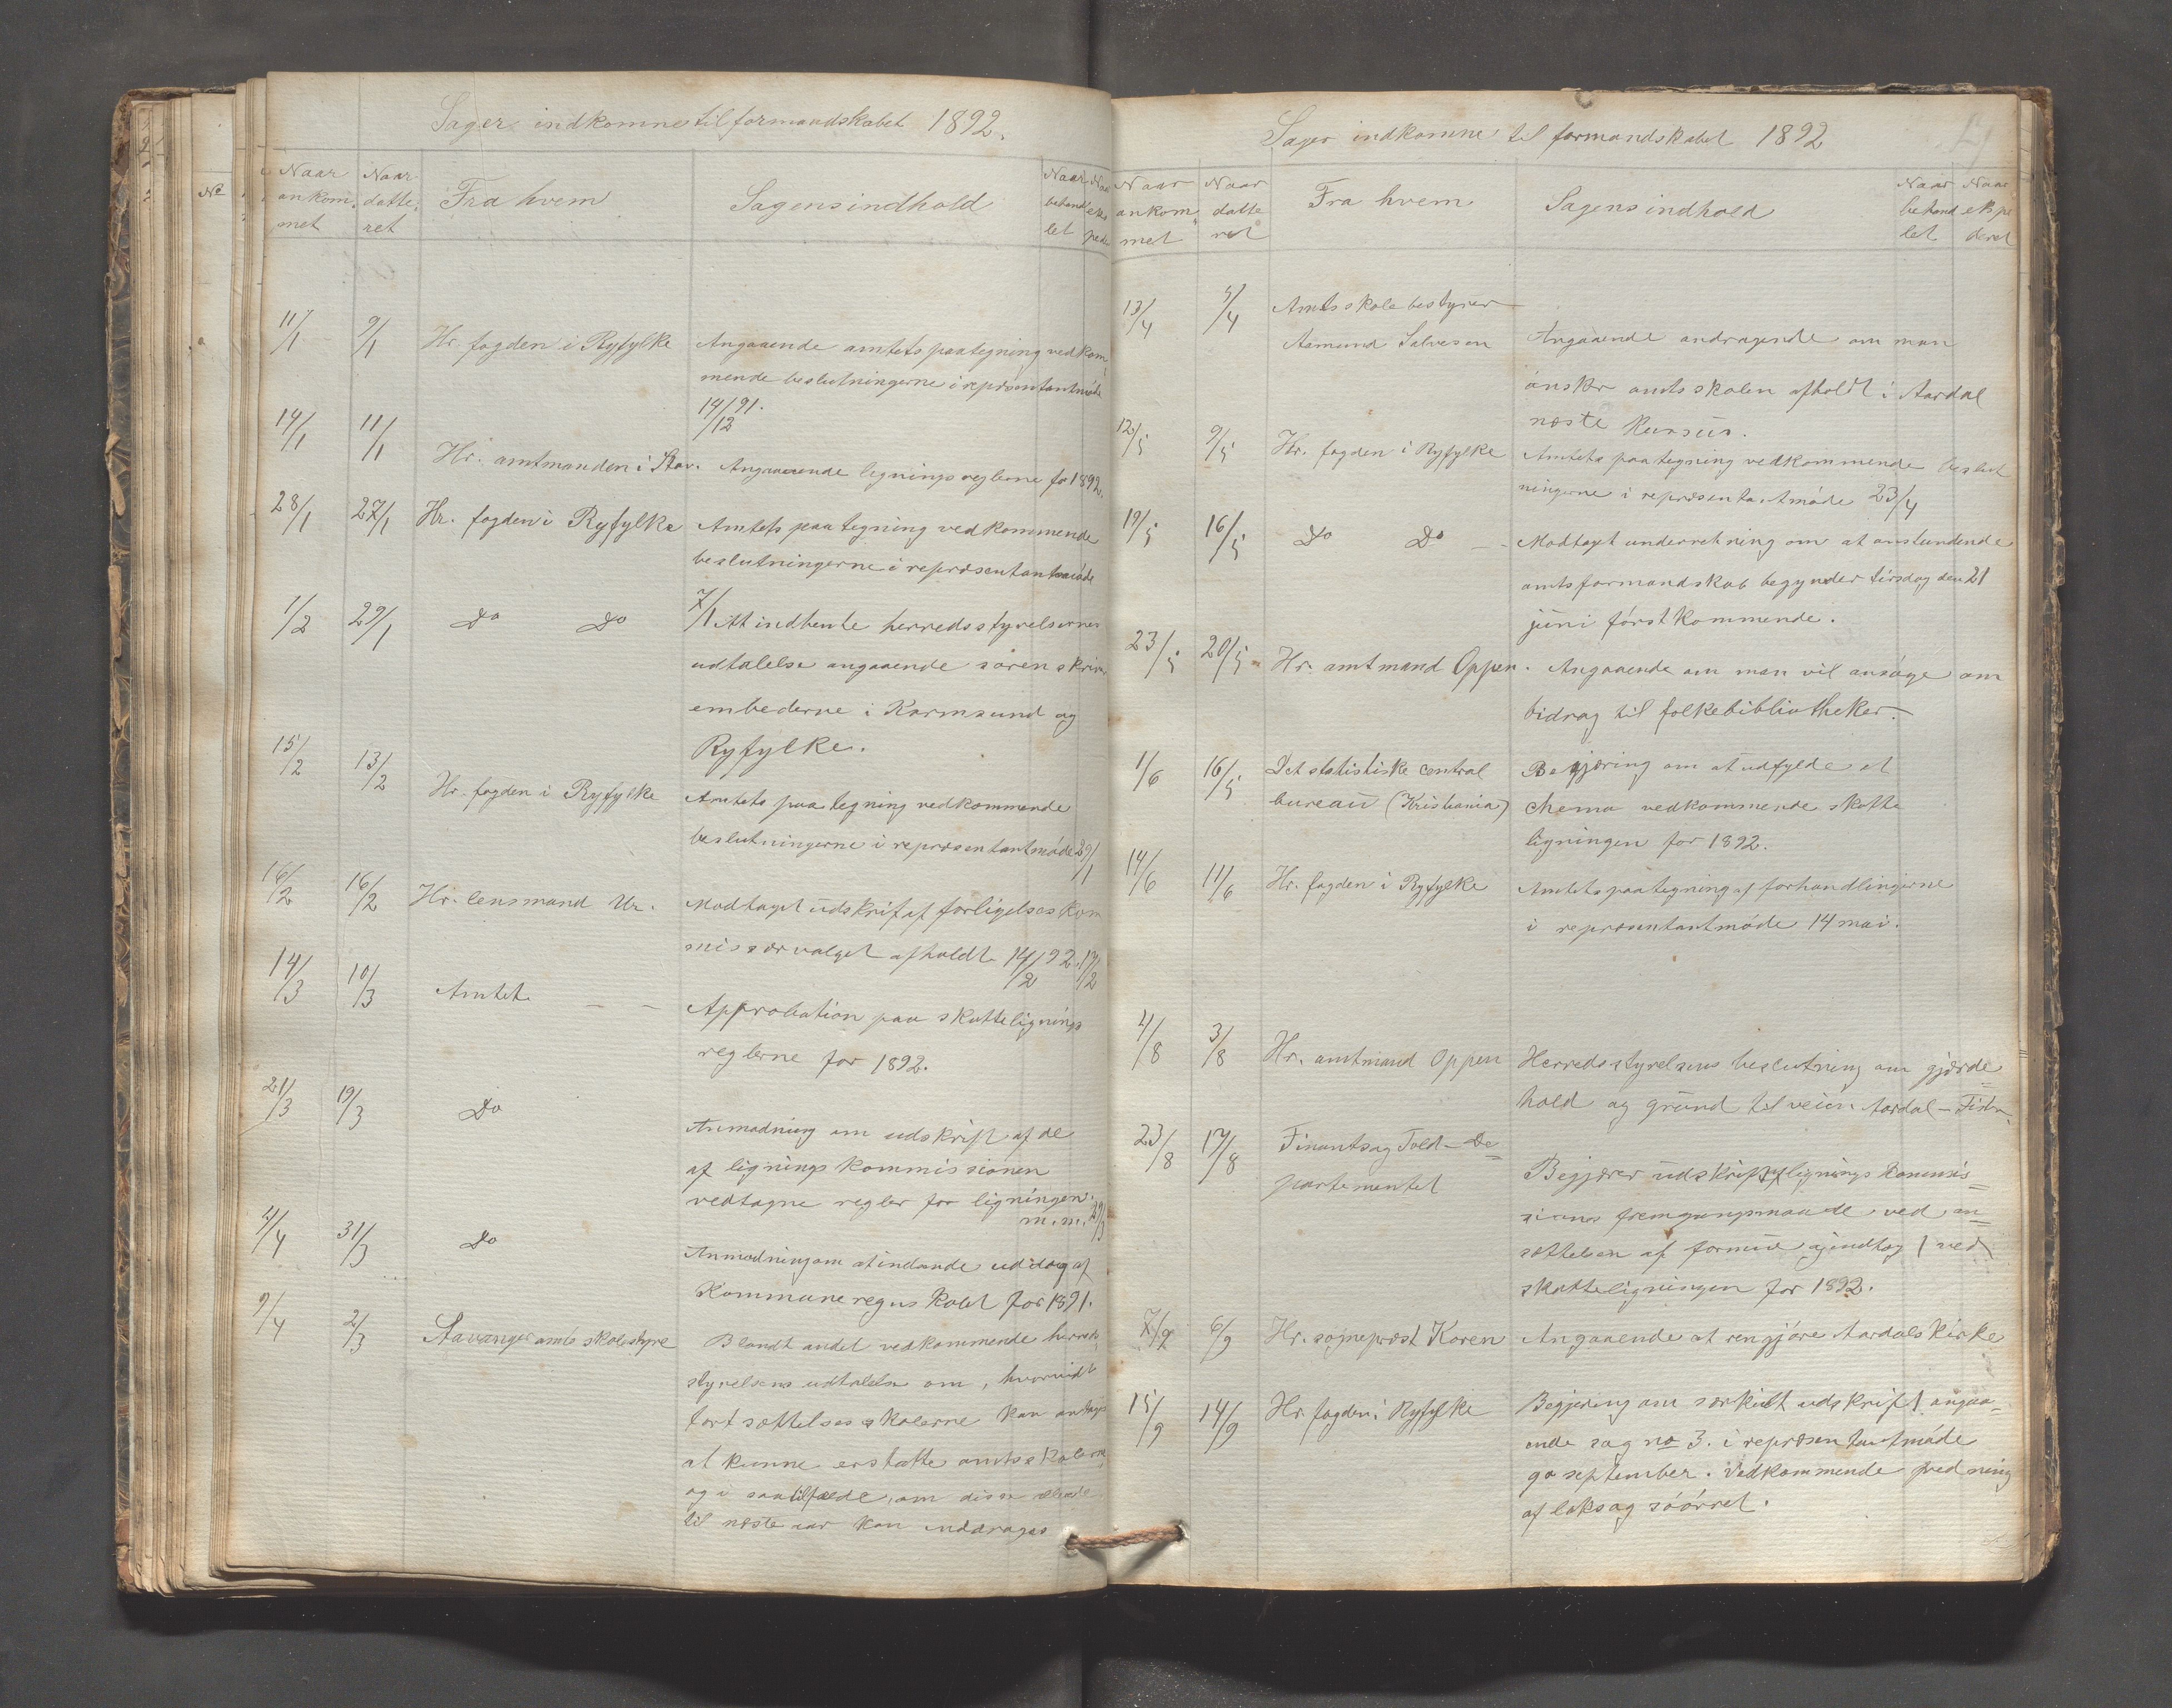 Sager indkomne til formandskabet 1892.
Naar ankommet
Naar datteret
Fra hvem
Sagens indhold
Naar behandlet
11/1 9/1 Hr. fogden i Ryfylke Angaaende amtets paategning vedkom
mende beslutningerne i repræsentantmøde
14/12 91.
14/1 11/1 Hr. amtmanden i Stav. Angaaende ligningsreglerne for 1892.
28/1 27/1 Hr. fogden i Ryfylke Amtets paategning vedkommende
beslutningerne i repræsentantmøde
7/1
1/2 29/1 Do Do At indhente herredsstyrelsernes
udtalelse angaaende sørenskriver
embederne i Karmsund og
Ryfylke.
15/2 13/2 Hr. fogden i Ryfylke Amtets paategning vedkommende
beslutningerne i repræsentantmøde 29/1
16/2 16/2 Hr. lensmand Ur. Modtaget udskrift af forligelseskom
missærvalget afholdt 14/2 92. 17/2
14/3 10/3 Amtet — — Approbation paa skattelignings
reglerne for 1892.
21/3 19/3 Do Anmodning om udskrift af de
af ligningskommissionen
vedtagne regler for ligningen.
m. m. 29/3
4/4 31/3 Do Anmodning om at indsende uddrag af
Kommuneregnskabet for 1891.
9/4 2/3 Stavanger amts skolestyre Blandt andet vedkommende herreds
styrelsens udtalelse om, hvorvidt
fortsættelsesskolerne kan antages
at kunne erstatte amtsskolerne
og i saatilfælde, om disse
til næste aar kan inddrages

Sager indkomne til formandskabet 1892
Naar ankommet
Naar datteret
Fra hvem
Sagens indhold
Naar behandlet
Naar ekspederet
13/4 5/4 Amtsskolebestyrer
Aamund Salvesen Angaaende andragende om man
ønsker amtsskolen afholdt i Aardal
næste kursus.
12/5 9/5 Hr. fogden i Ryfylke Amtets paategning vedkommende beslut
ningerne i repræsentantmøde 23/4
19/5 16/5 Do Do — Modtaget underretning om at anstundende
amtsformandskab begynder tirsdag den 21
juni førstkommende.
23/5 20/5 Hr. amtmand Oppen. Angaaende om man vil ansøge om
bidrag til folkebibliotheker.
1/6 16/5 Det statistiske central Begjæring om at udfylde et
bureau (Kristiania) chema vedkommende skatte
ligningen for 1892.
14/6 11/6 Hr. fogden i Ryfylke Amtets paategning af forhandlingerne
i repræsentantmøde 14 mai.
4/8 3/8 Hr. amtmand Oppen Herredsstyrelsens beslutning om gjærde
hold og grund til veien Aardal —
23/8 17/8 Finants og Told-De
partementet Begjærer udskrift af ligningskommis
sions fremgangsmaade ved an
sættelsen af formue og indtægt ved
skatteligningen for 1892.
7/9 6/9 Hr. sognepræst Koren Angaaende at rengjøre Aardals kirke
15/9 14/9 Hr. fogden i Ryfylke Begjæring om særkilt udskrift angaa-
ende sag no 3. i repræsentantmøde
september. Vedkommende fredning
af laks og søørret.